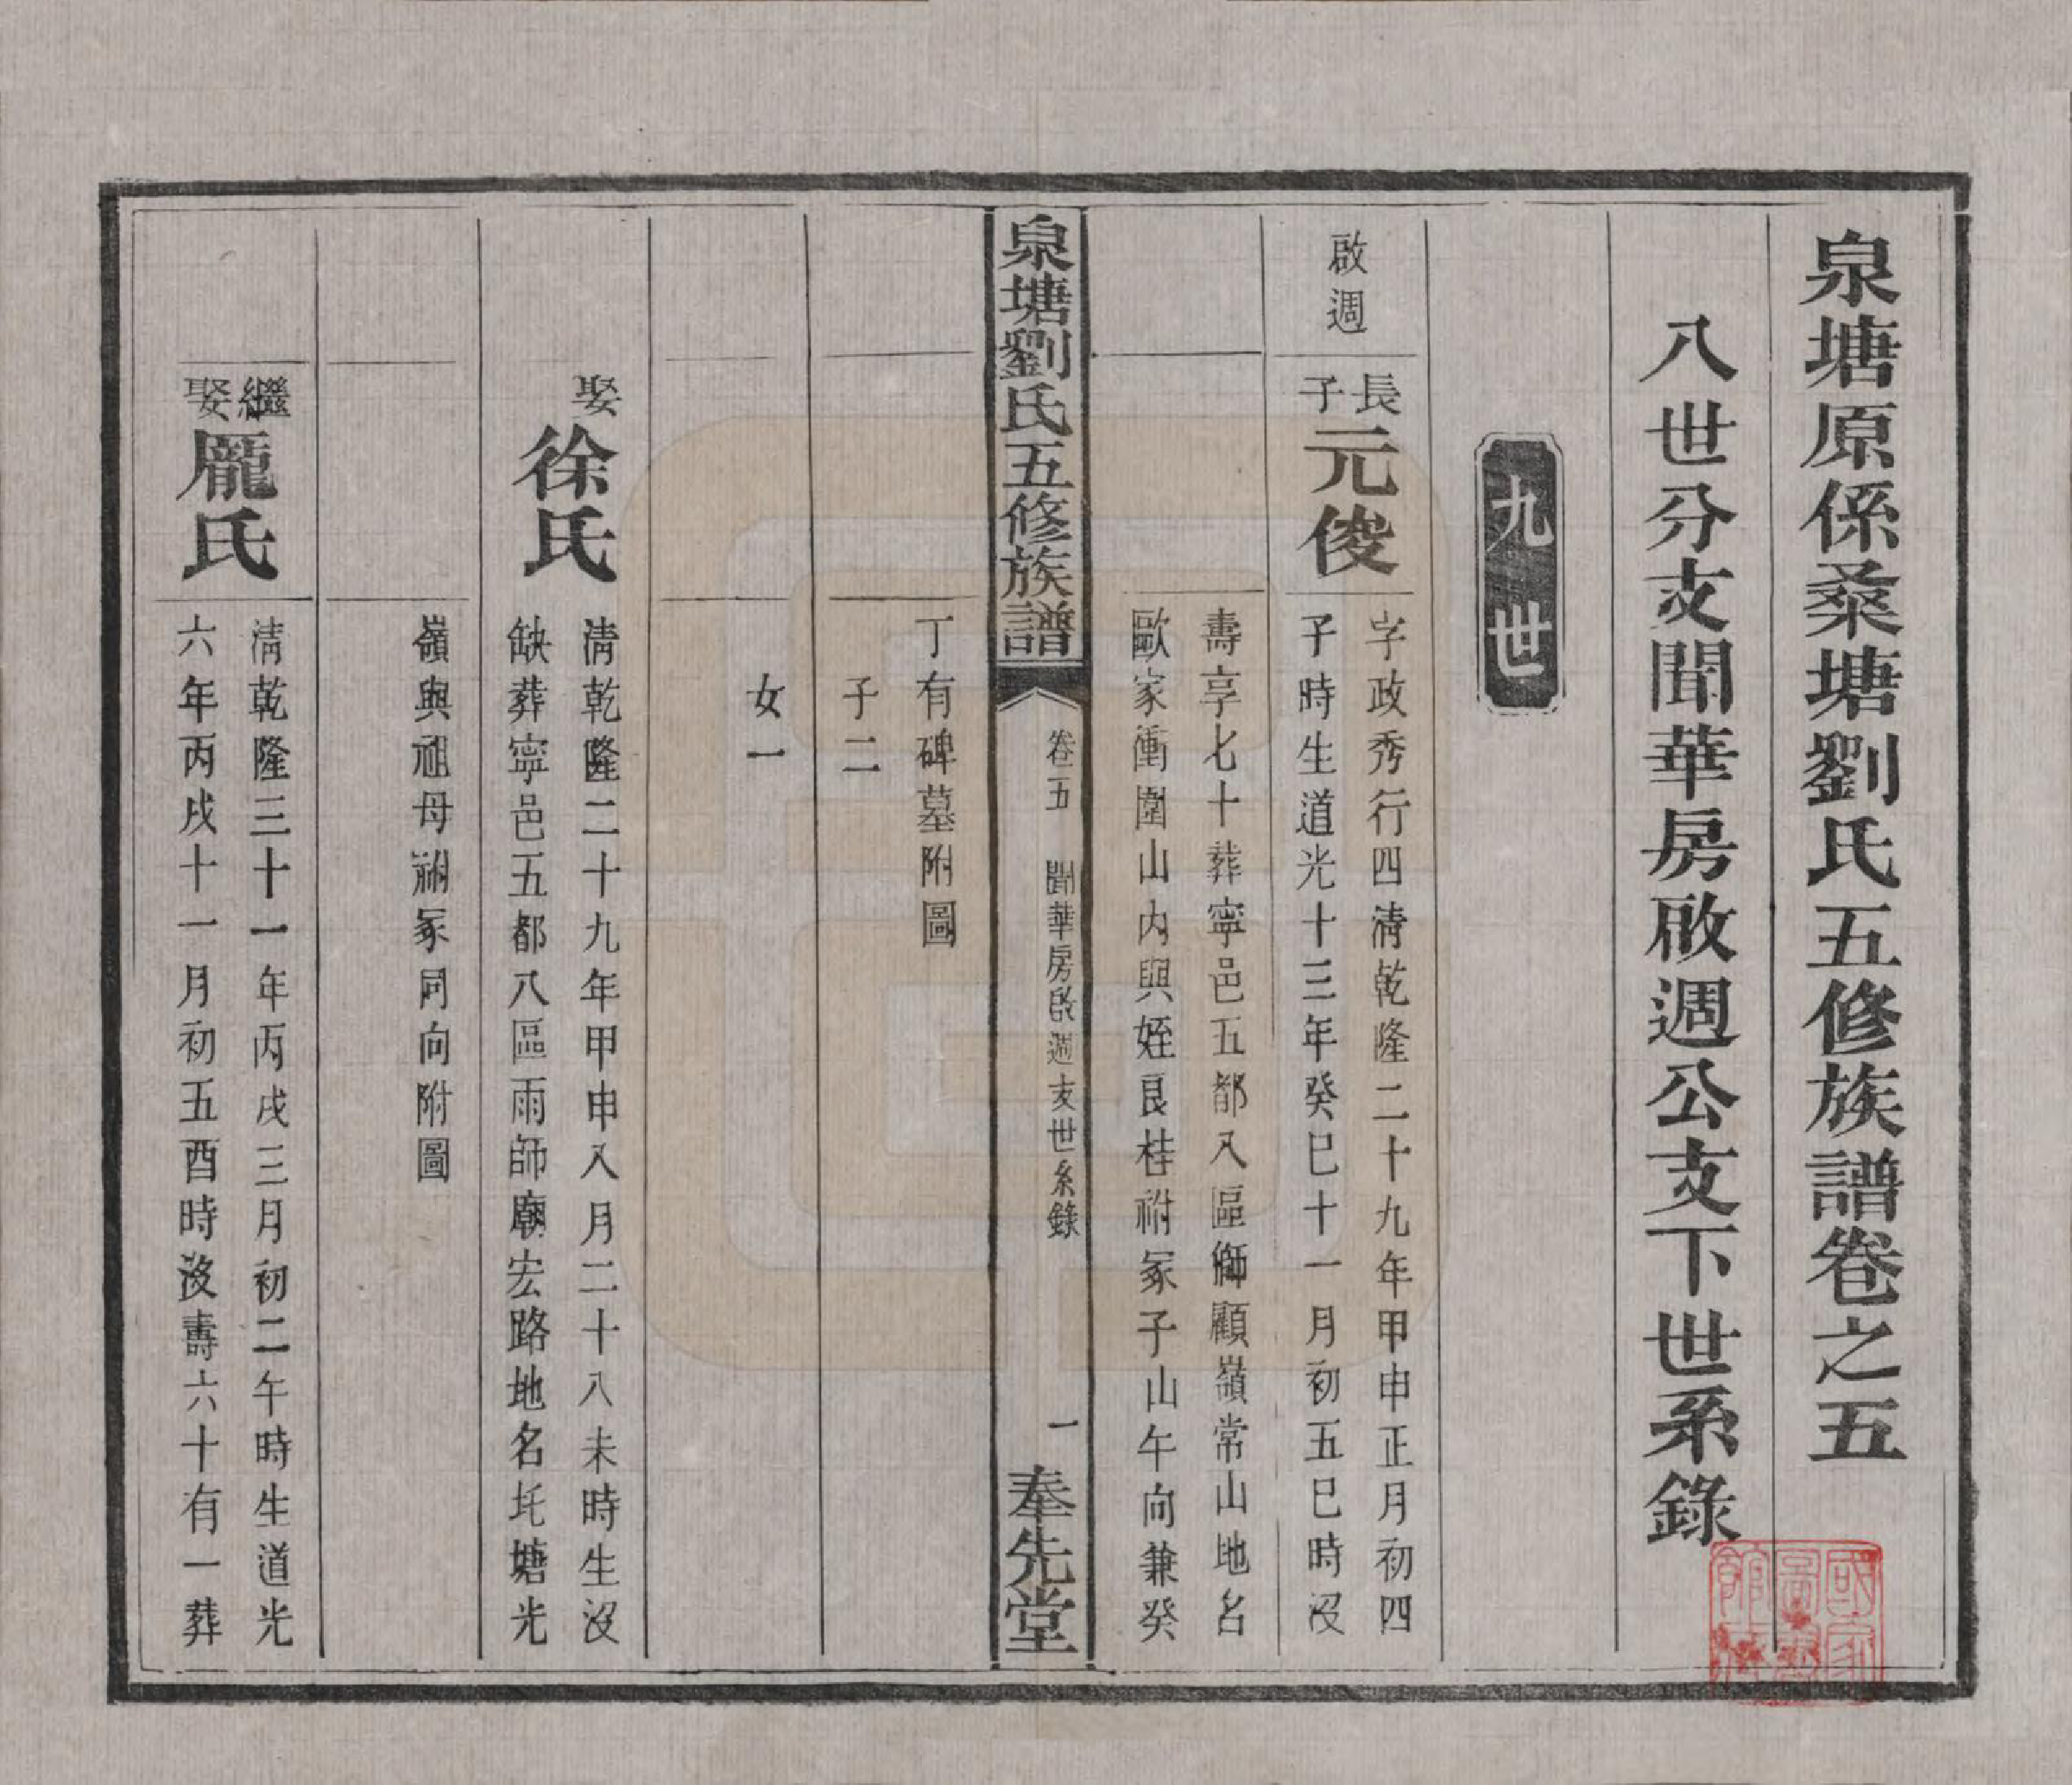 泉塘原係桑塘劉氏五修族譜卷之五
八世分支聞華房啟週公支下世系錄
九世
啟週
長子
元俊
字政秀行四清乾隆二十九年甲申正月初四
子時生道光十三年癸巳十一月初五巳時沒
壽享七十葬寧邑五都八區獅顧嶺常山地名
歐家衝圍山內與姪良桂祔冢子山午向兼癸
泉塘劉氏五修族譜
卷五
聞華房啟週支世系錄
一
奉先堂
丁有碑墓附圖
子二
女一
娶
徐氏
清乾隆二十九年甲申八月二十八未時生沒
缺葬寧邑五都八區雨師廟宏路地名圫塘光
嶺與祖母祔冢同向附圖
繼娶
龐氏
清乾隆三十一年丙戌三月初二午時生道光
六年丙戌十一月初五酉時沒壽六十有一葬
國家圖書館藏